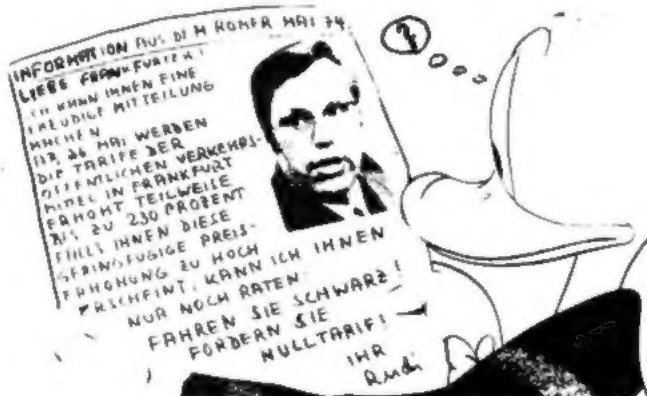 INFORMATION AUS DEM RÖMER MAI 74
LIEBE FRANKFURTER!
ICH KANN IHNEN EINE
FREUDIGE MITTEILUNG
MACHEN
AB 26 MAI WERDEN
DIE TARIFE DER
ÖFFENTLICHEN VERKEHRS-
MITTEL IN FRANKFURT
ERHÖHT TEILWEISE
BIS ZU 230 PROZENT
FALLS IHNEN DIESE
GERINGFÜGIGE PREIS-
ERHÖHUNG ZU HOCH
ERSCHEINT, KANN ICH IHNEN
NUR NOCH RATEN:
FAHREN SIE SCHWARZ!
FORDERN SIE
NULLTARIF!
IHR
Rudi
?